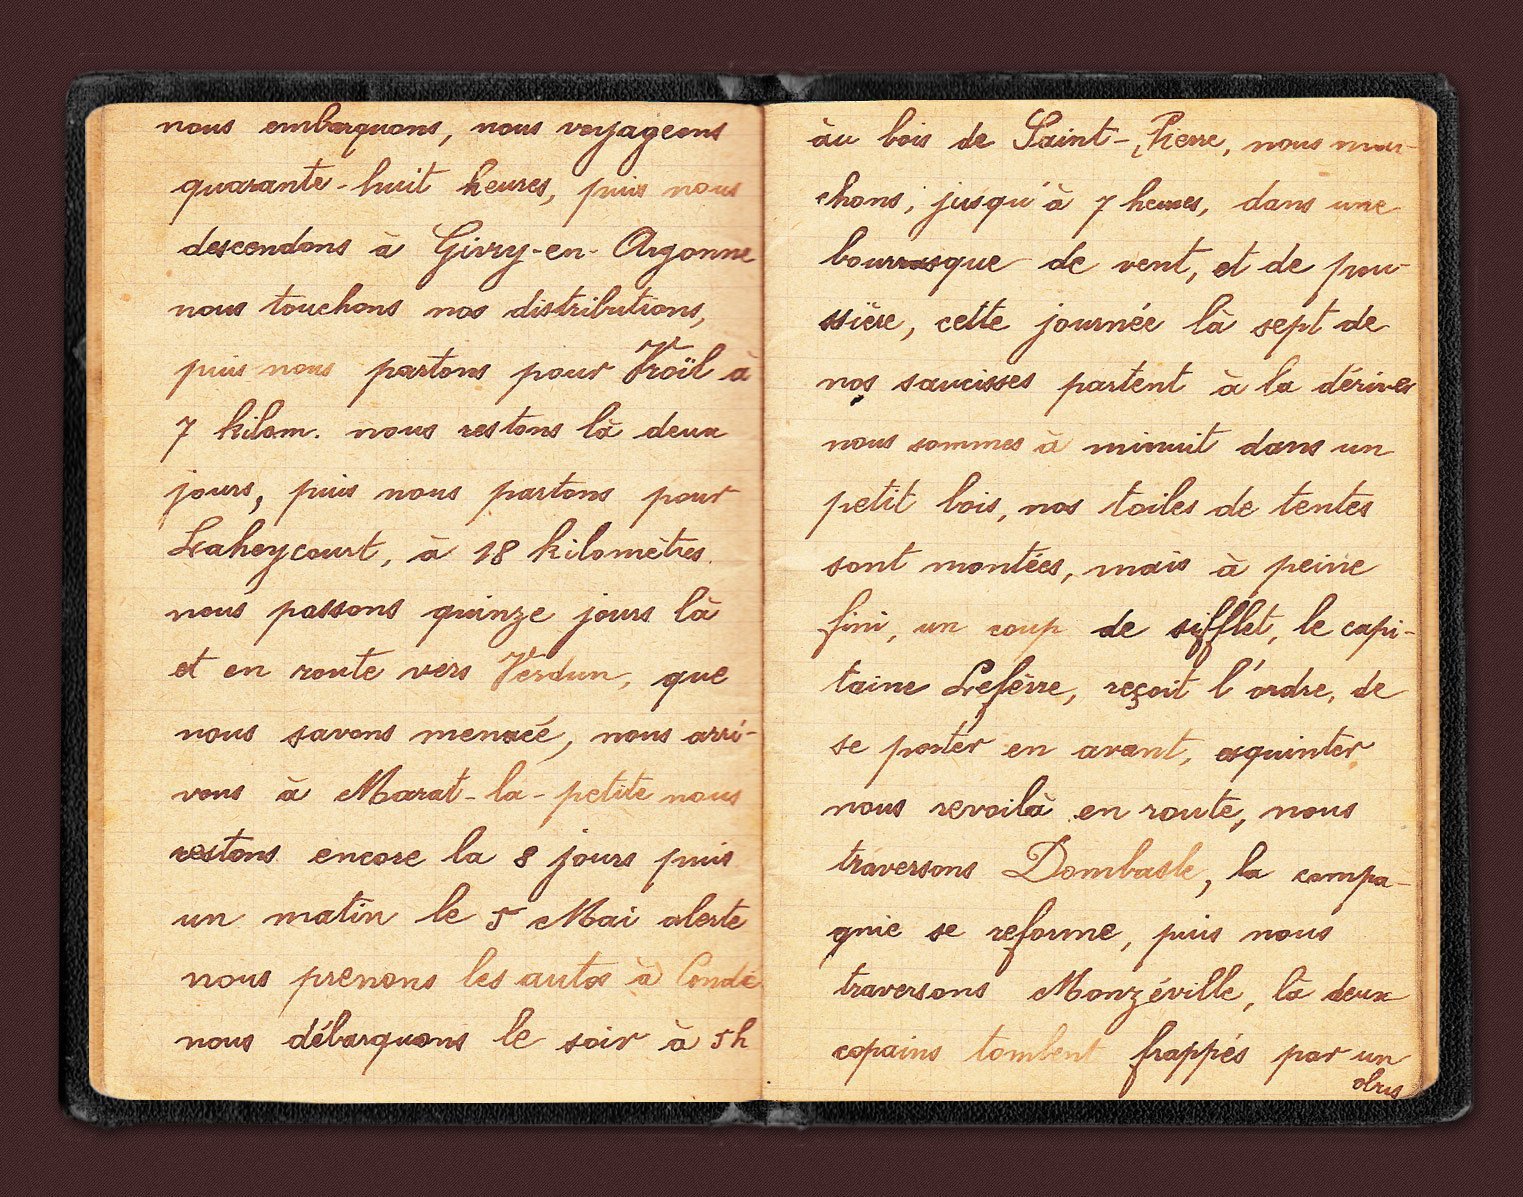 nous embarquons, nous voyageons
quarante-huit heures, puis nous
descendons à Givry-en-Argonne
nous touchons nos distributions,
puis nous partons pour Vroïl à
7 kilom. nous restons là deux
jours, puis nous partons pour
Laheycourt, à 18 kilomètres.
nous passons quinze jours là
et en route vers Verdun, que
nous savons menacé, nous arri-
vons à Marat-la-petite nous
restons encore la 8 jours puis
un matin le 5 Mai alerte
nous prenons les autos à Condé
nous débarquons le soir à 5h
àu bois de Saint-Pierre, nous mar-
chons, jusqu'à 7 heures, dans une
bourrasque de vent, et de pou-
ssière, cette journée là sept de
nos saucisses partent à la dérives
nous sommes à minuit dans un
petit bois, nos toiles de tentes
sont montées, mais à peine
fini, un coup de sifflet, le capi-
taine Lefèvre, reçoit l'ordre, de
se porter en avant, esquinter
nous revoilà en route, nous
traversons Dombasle, la compa-
gnie se reforme, puis nous
traversons Monzéville, là deux
copains tombent frappés par un
obus